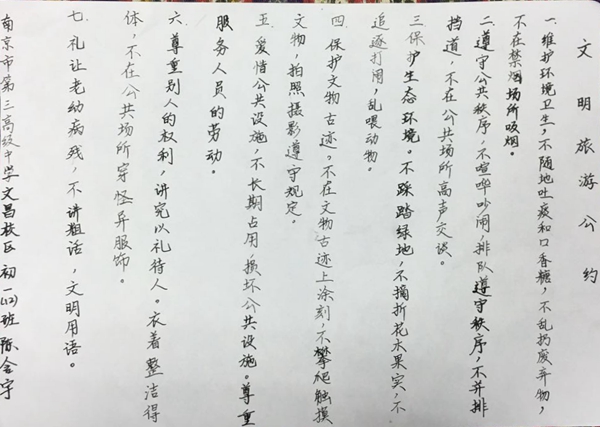 文明旅游公约
一、维护环境卫生，不随地吐痰和口香糖，不乱扔废弃物，
不在禁烟场所吸烟。
二、遵守公共秩序，不喧哗吵闹，排队遵守秩序，不并排
挡道，不在公共场所高声交谈。
三、保护生态环境。不踩踏绿地，不摘折花木果实，不
追逐打闹，乱喂动物。
四、保护文物古迹。不在文物古迹上涂刻，不攀爬触摸
文物，拍照摄影遵守规定。
五、爱惜公共设施，不长期占用，损坏公共设施。尊重
服务人员的劳动。
六、尊重别人的权利，讲究以礼待人。衣着整洁得
体，不在公共场所穿怪异服饰。
七、礼让老幼病残，不讲粗话，文明用语。
南京市第三高级中学文昌校区初一(12)班陈金宇